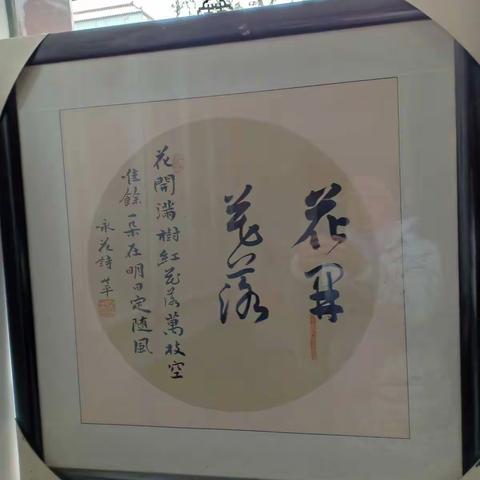 花開
花落
花開滿樹紅花落萬枝空
唯餘一朵在明日定隨風
永花詩